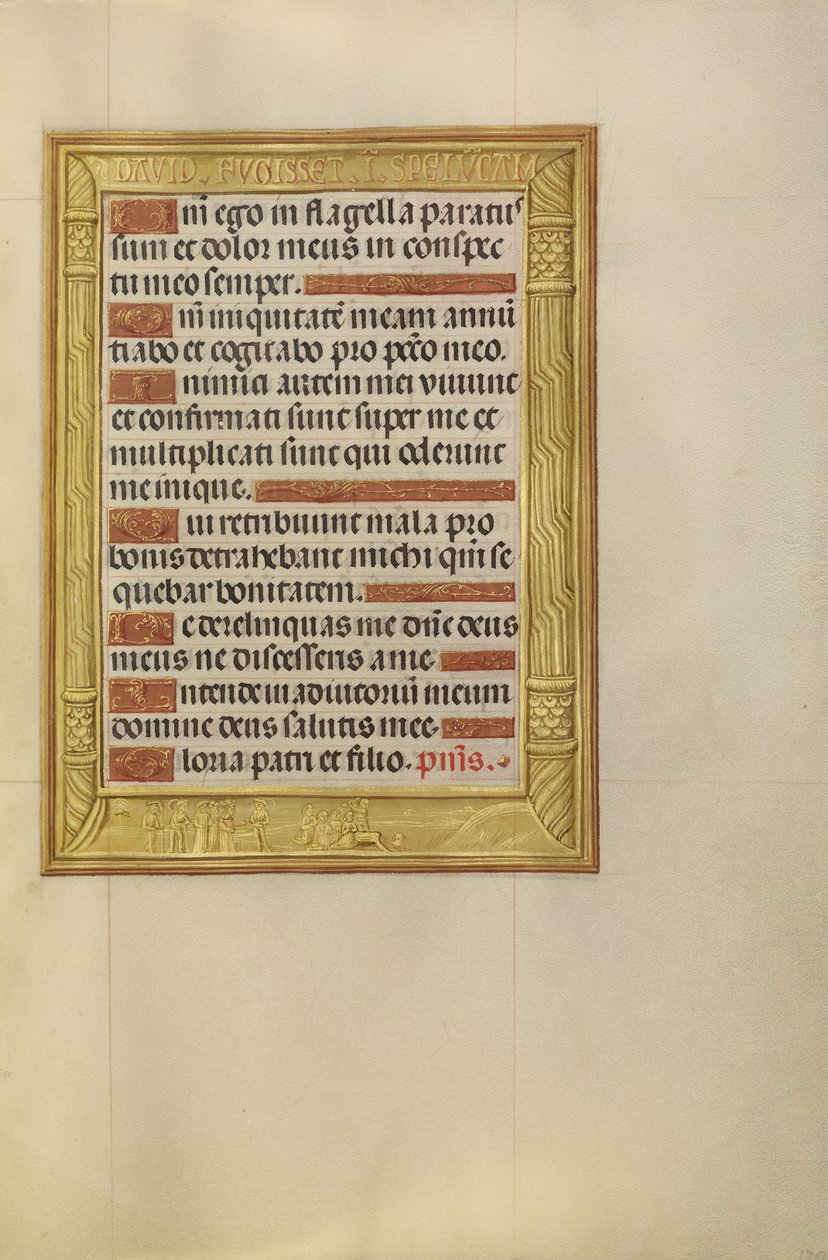 DAVID. FUGISSET. Ī. SPELŪCAM
Qm̄ ego in flagella paratus
sum et dolor meus in conspec
tu meo semper.
Qm̄ iniquitatē meam annū
tiabo et cogitabo pro pctō meo.
Inimici autem mei viuunt
et confirmati sunt super me et
multiplicati sunt qui oderunt
me inique.
Qui retribuunt mala pro
bonis detrahebant michi qm̄ se
quebar bonitatem.
Ne derelinquas me dn̄e deus
meus ne discesseris a me
Intende in adiutoriū meum
domine deus salutis mee.
Gloria patri et filio. pm̄s.